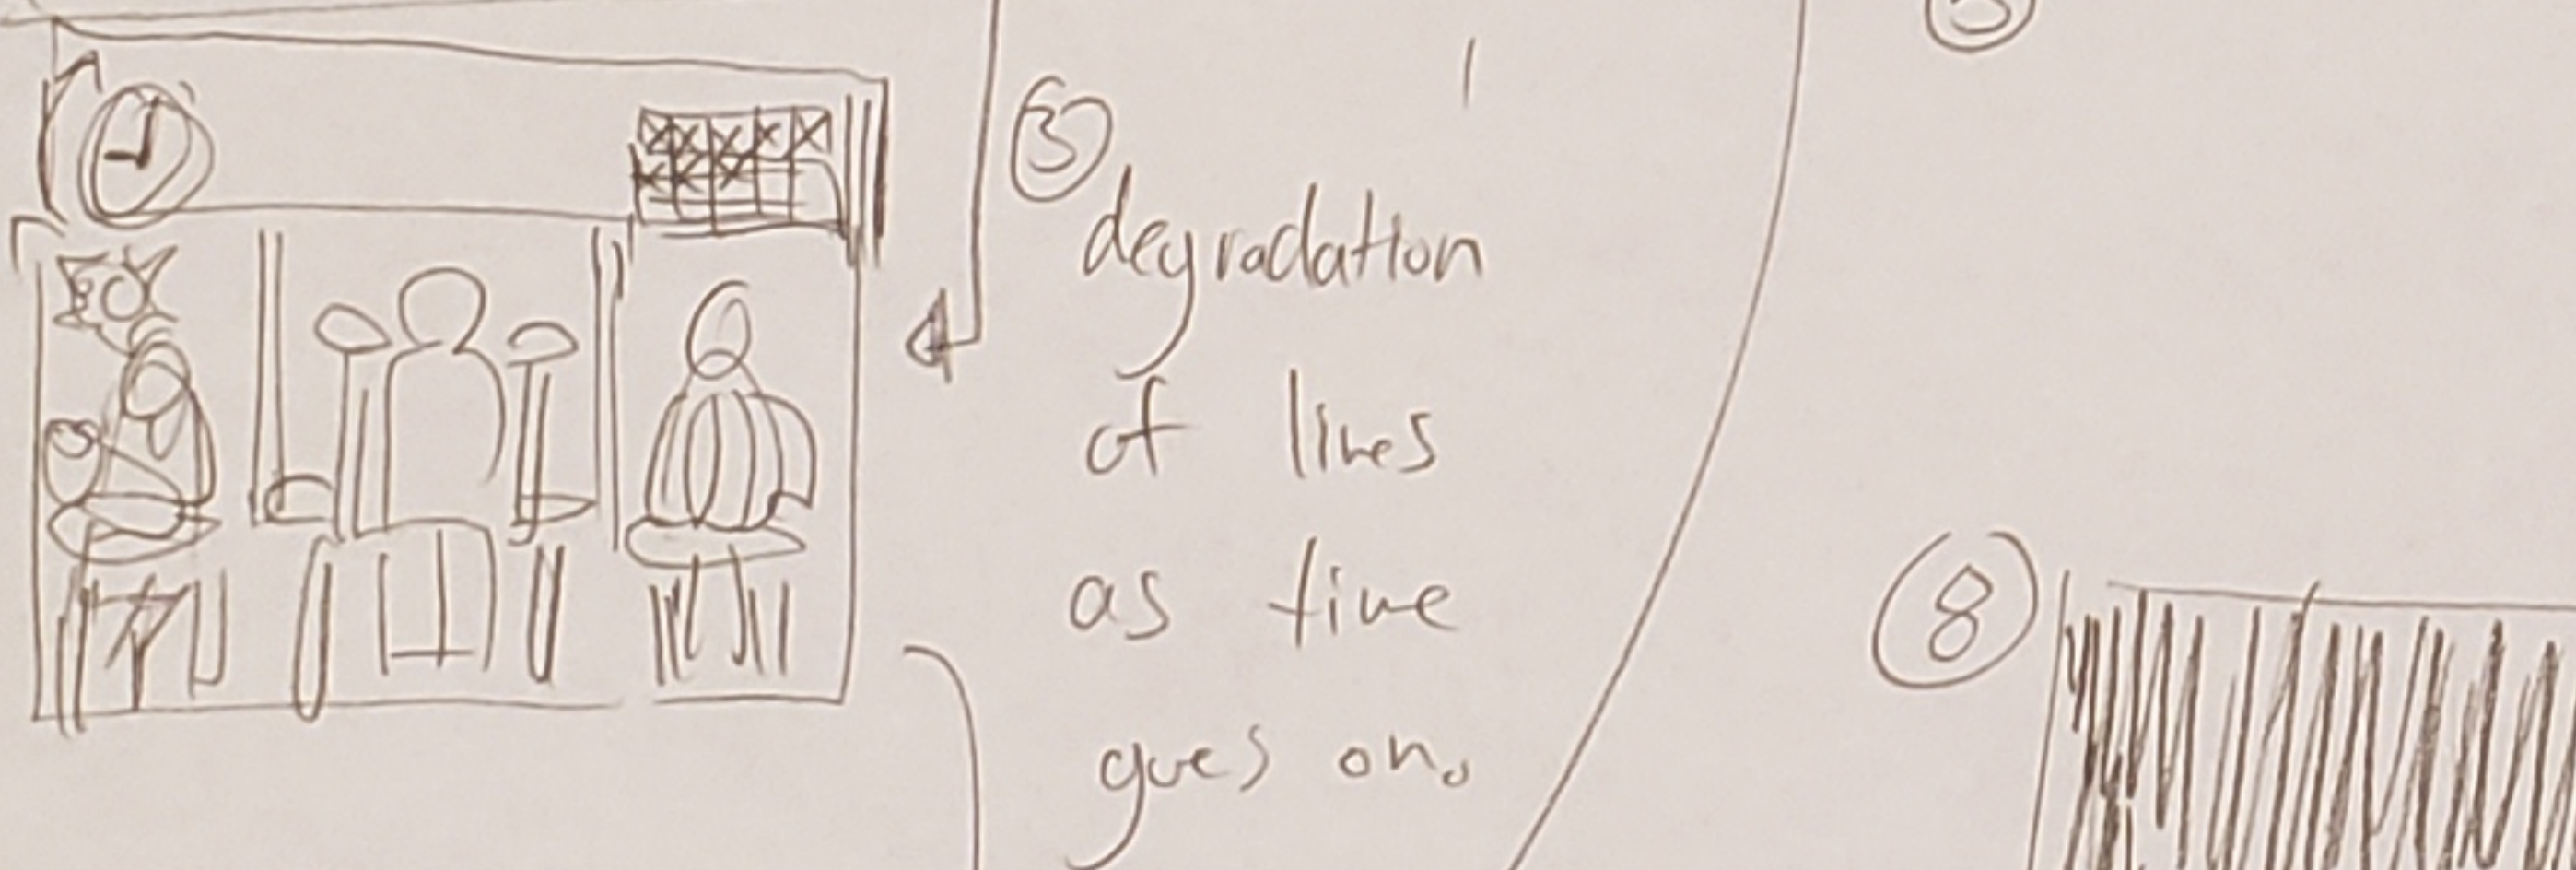 3
degradation
of lines
as time
goes on.
8